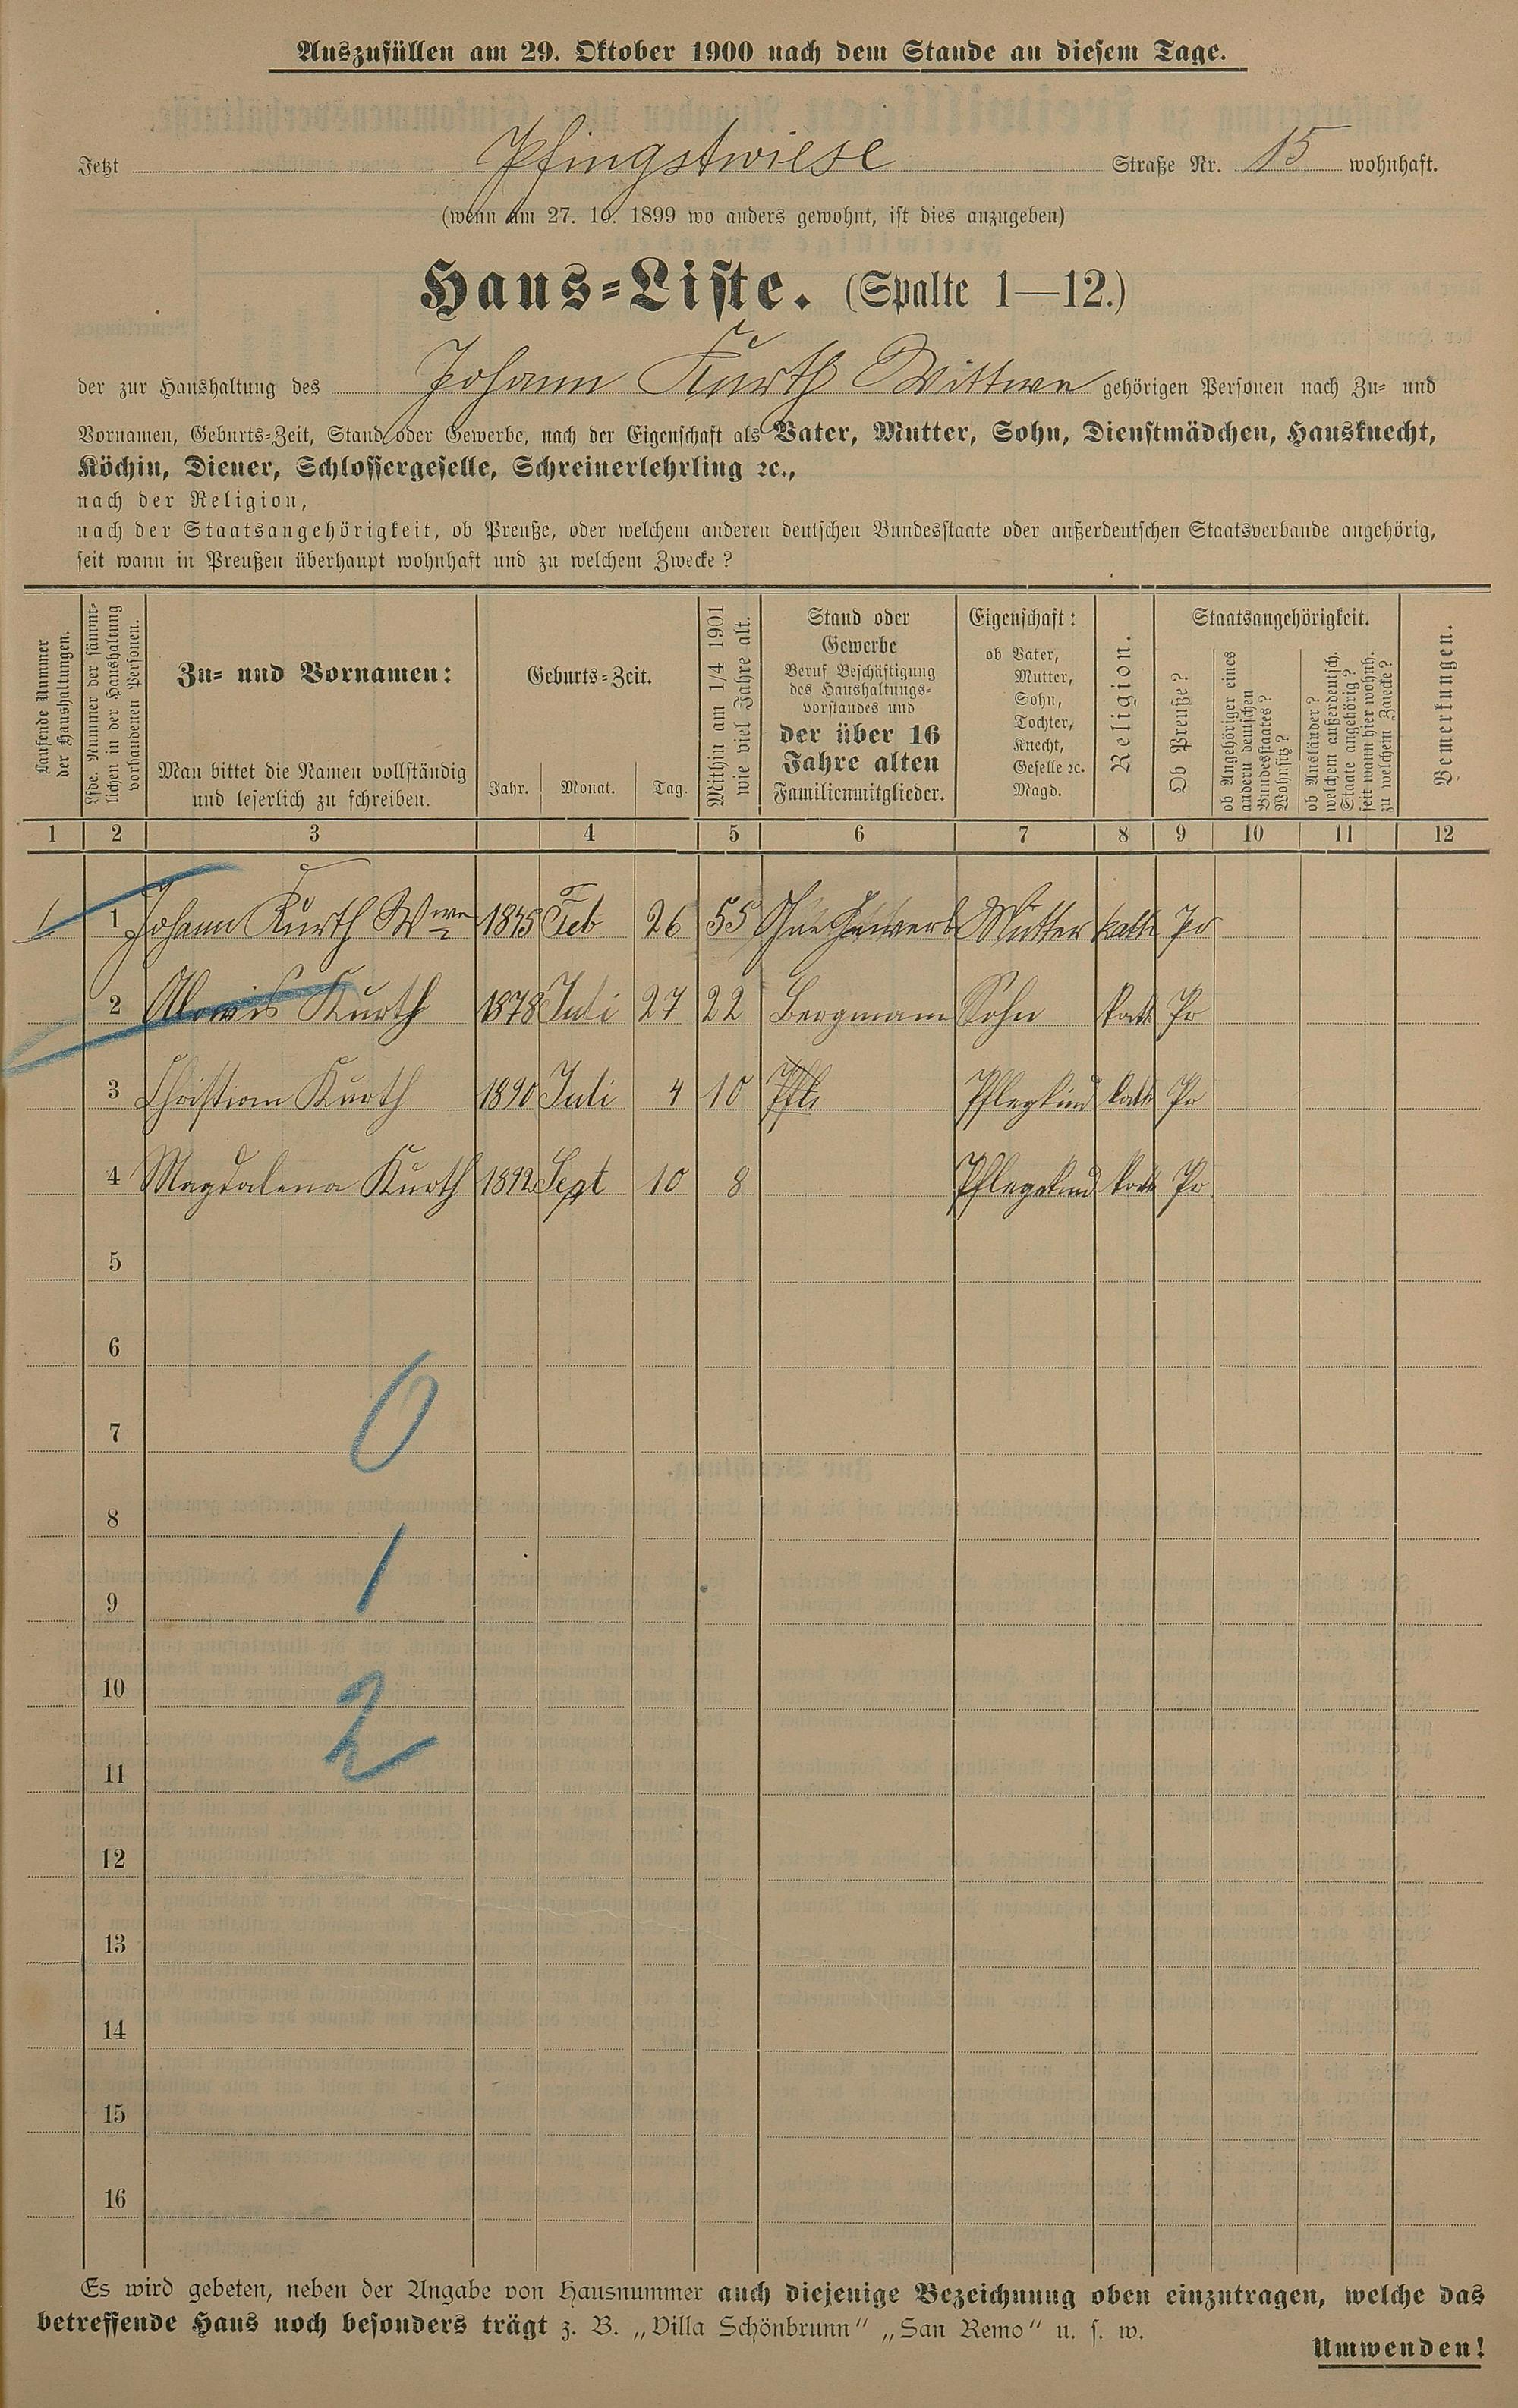 Auszufüllen am 29. Oktober 1900 nach dem Stande an diesem Tage.
Jetzt Pfingstwiese Straße Nr. 15 wohnhaft.
(wenn am 27. 10. 1899 wo anders gewohnt, ist dies anzugeben)
Haus-Liste. (Spalte 1—12.)
der zur Haushaltung des Johann Kurth Wittwe gehörigen Personen nach Zu- und
Vornamen, Geburts-Zeit, Stand oder Gewerbe, nach der Eigenschaft als Vater, Mutter, Sohn, Dienstmädchen, Hausknecht,
Köchin, Diener, Schlossergeselle, Schreinerlehrling ꝛc.,
nach der Religion,
nach der Staatsangehörigkeit, ob Preuße, oder welchem anderen deutschen Bundesstaate oder außerdeutschen Staatsverbande angehörig,
seit wann in Preußen überhaupt wohnhaft und zu welchem Zwecke?
Laufende Nummer
der Haushaltungen.
Lfde. Nummer der sämmt-
lichen in der Haushaltung
vorhandenen Personen.
Zu- und Vornamen:
Man bittet die Namen vollständig
und leserlich zu schreiben.
Geburts-Zeit.
Jahr. Monat. Tag.
Mithin am 1/4 1901
wie viel Jahre alt.
Stand oder
Gewerbe
Beruf Beschäftigung
des Haushaltungs-
vorstandes und
der über 16
Jahre alten
Familienmitglieder.
Eigenschaft:
ob Vater,
Mutter,
Sohn,
Tochter,
Knecht,
Geselle ꝛc.
Magd.
Religion.
Staatsangehörigkeit.
Ob Preuße?
ob Angehöriger eines
andern deutschen
Bundesstaates?
Wohnsitz?
ob Ausländer?
welchem außerdeutsch.
Staate angehörig?
seit wann hier wohnh.
zu welchem Zwecke?
Bemerkungen.
1 2 3 4 5 6 7 8 9 10 11 12
1 1 Johann Kurth Wwe 1845 Feb 26 55 Ohne Gewerb Mutter kath Pr
2 Alowis Kurth 1878 Juli 27 22 Bergmann Sohn kath Pr
3 Christian Kurth 1890 Juli 4 10 Pfle Pflegkind kath Pr
4 Magdalena Kurth 1892 Sept 10 8 Pflegekind kath Pr
5
6
7
0
8
9
1
10
2
11
12
13
14
15
16
Es wird gebeten, neben der Angabe von Hausnummer auch diejenige Bezeichnung oben einzutragen, welche das
betreffende Haus noch besonders trägt z. B. „Villa Schönbrunn“ „San Remo“ u. s. w.
Umwenden!